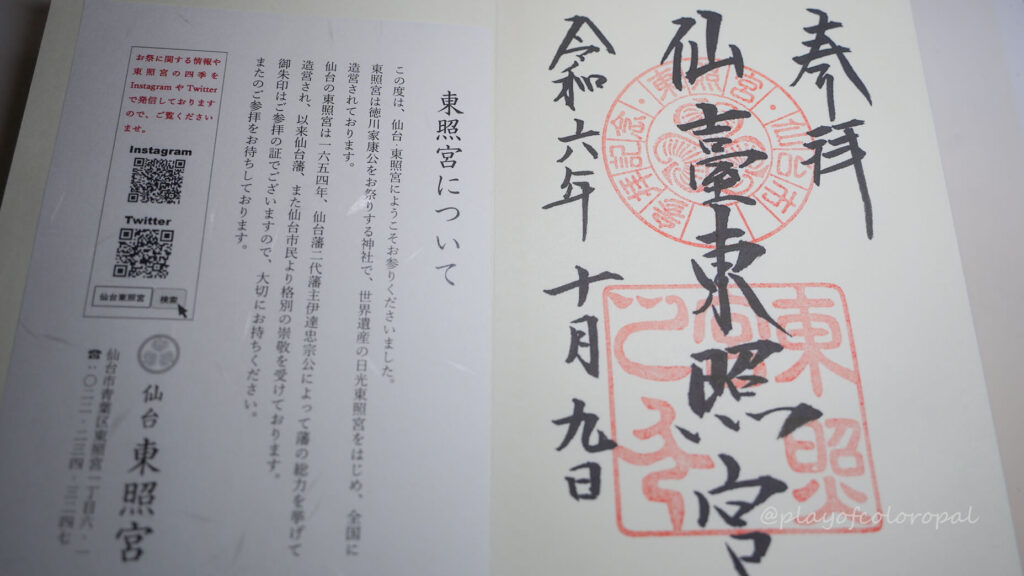 奉拝
仙臺東照宮
令和六年 十月 九日
仙台市・東照宮・参拝記念・
東照
@playofcoloropal
東照宮について
この度は、仙台 東照宮にようこそお参りくださいました。
東照宮は徳川家康公をお祭りする神社で、世界遺産の日光東照宮をはじめ、全国に
造営されております。
仙台の東照宮は一六五四年、仙台藩二代藩主伊達忠宗公によって藩の総力を挙げて
造営され、以来仙台藩、また仙台市民より格別の崇敬を受けております。
御朱印はご参拝の証でございますので、大切にお持ちください。
またのご参拝をお待ちしております。
お祭に関する情報や
東照宮の四季を
Instagram や Twitter
で発信しております
ので、ご覧ください
ませ。
Instagram
Twitter
仙台東照宮 検索
仙台 東照宮
仙台市青葉区東照宮一丁目六‐一
☎:〇二二‐二三四‐三二四七